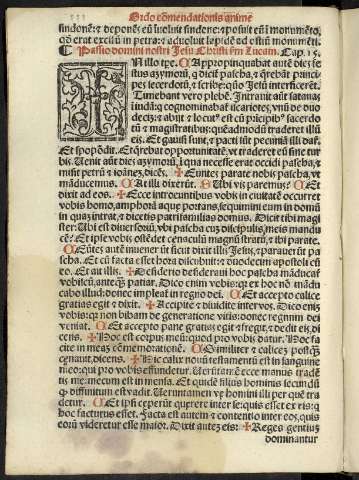 Ordo cõmendationis anime
sindonẽ: et deponẽs eũ inuoluit sindone: et posuit eũ ĩ monumẽto,
qđ erat excisũ in petra: et aduoluit lapidẽ ad ostiũ monumẽti.
¶ Passio domini nostri Jesu Christi ẽm Lucam. Cap. 15.
IN illo tpe. Appropinquabat autẽ dies fe
stus azymoꝝ, q̃ dicit̃ pascha, et q̃rebãt princi
pes sacerdotũ, et scribe: quõ Jesũ interficerẽt.
Timebant vero plebẽ. Intrauit aũt satanas
iudã: q̃ cognominabat̃ iscariotes, vnũ de duo
decĩ: et abijt et locut⁹ est cũ pñcipib⁹ sacerdo
tũ et magistratibus: quẽadmodũ traderet illũ
eis. Et gauisi sunt, et pacti sũt pecuniã illi dare.
Et spopõdit. Et q̃rebat opportunitatẽ, vt traderet eũ sine tur
bis. Uenit aũt dies azymoꝝ, ĩ qua necesse erat occidi pascha, et
misit petrũ et ioãnẽ, dicẽs. ✠ Euntes parate nobis pascha, vt
mãducemus. At illi dixerũt. Ubi vis paremus? Et
dixit ad eos. ✠ Ecce introeuntibus vobis in ciuitatẽ occurret
vobis homo, amphorã aque portans, sequimini eum in domũ
in quã intrat, et dicetis patrifamilias domus. Dicit tibi magi
ster: Ubi est diuersoriũ, vbi pascha cũ discipulis meis mandu
cẽ? Et ipse vobis oñdet cenaculũ magnũ stratũ, et ibi parate.
Eũtes autẽ inuenerũt sicut dixit illis Jesus, et parauerũt pa
scha. Et cũ facta esset hora discubuit et duodecim apostoli cũ
eo. Et ait illis. ✠ Desiderio desideraui hoc pascha mãducare
vobiscũ, anteq̃ patiar. Dico enim vobis: q̃ ex hoc nõ mãdu
cabo illud: donec impleat̃ in regno dei. Et accepto calice
gratias egit et dixit. ✠ Accipite et diuidite inter vos. Dico eniz
vobis: q̃ non bibam de generatione vitis: donec regnum dei
veniat. Et accepto pane gratias egit et fregit, et dedit eis, di
cens. ✠ Hoc est corpus meũ: quod pro vobis datur. Hoc fa
cite in meaz cõmemorationẽ. Similiter et calicez postq̃
cenauit, dicens. ✠ Hic calix nouũ testamentũ est in sanguine
meo: qui pro vobis effundetur. Uerũtamẽ ecce manus tradẽ
tis me: mecum est in mensa. Et quidẽ filius hominis secundũ
q̃ diffinitum est vadit. Ueruntamen ve homini illi per quẽ tra
detur. Et ipsi ceperũt querere inter se: quis esset ex eis: q̃
hoc facturus esset. Facta est autem et contentio inter eos, quis
eorũ videretur esse maior. Dixit autez eis: ✠ Reges gentiuz
dominantur